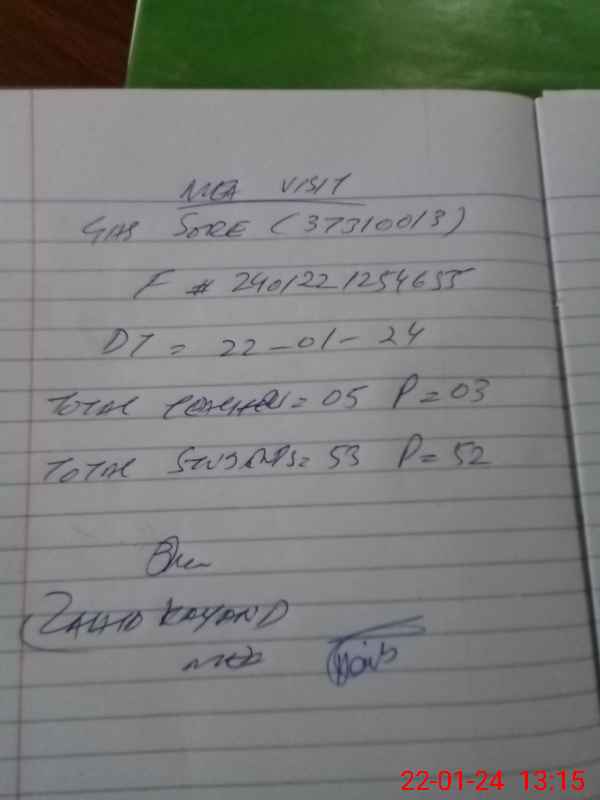 MEA VISIT
GHS SORE (37310013)
F # 2401221254655
DT = 22-01-24
TOTAL = 05 P = 03
TOTAL STUDENTS = 53 P = 52
MEA
22-01-24 13:15